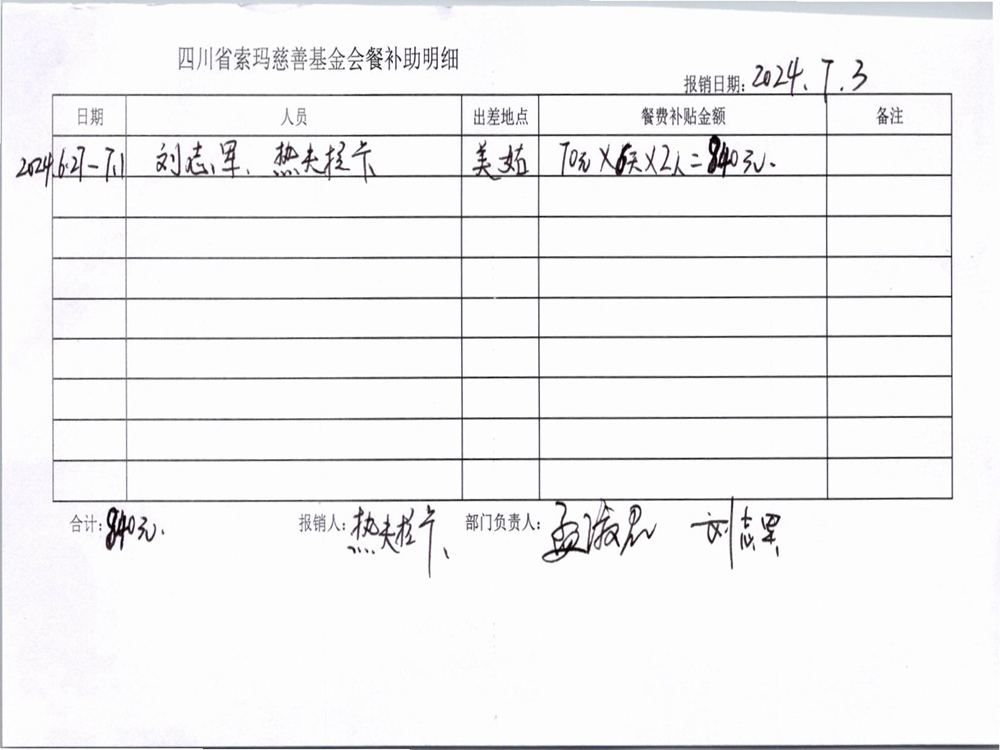 四川省索玛慈善基金会餐补助明细
报销日期：2024.7.3
日期 人员 出差地点 餐费补贴金额 备注
2024.6.27-7.1 刘志军、热夫拉卡 美姑 70元×6天×2人=840元.
合计：840元. 报销人：热夫拉卡 部门负责人： 刘志军